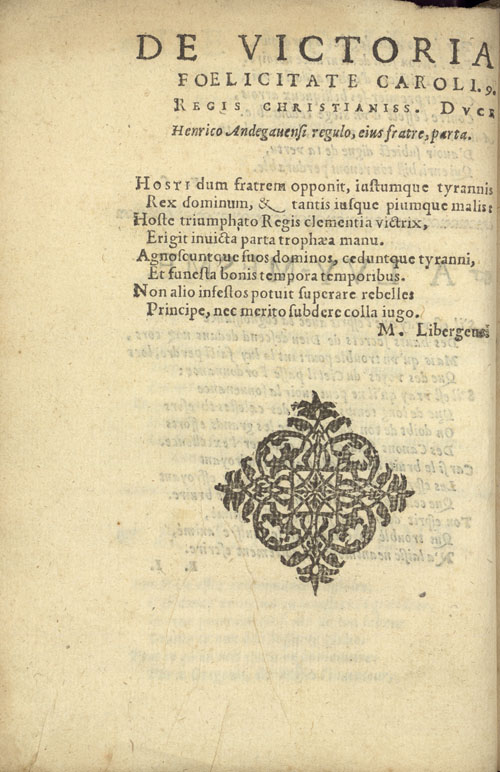 DE VICTORIA
FOELICITATE CAROLI. 9.
REGIS CHRISTIANISS. DVCE
Henrico Andegauensi regulo, eius fratre, parta.
HOSTI dum fratrem opponit, iustumque tyrannis
Rex dominum, & tantis iusque piumque malis:
Hoste triumphato Regis clementia victrix,
Erigit inuicta parta trophæa manu.
Agnoscuntque suos dominos, ceduntque tyranni,
Et funesta bonis tempora temporibus.
Non alio infestos potuit superare rebelles
Principe, nec merito subdere colla iugo.
M. Libergens